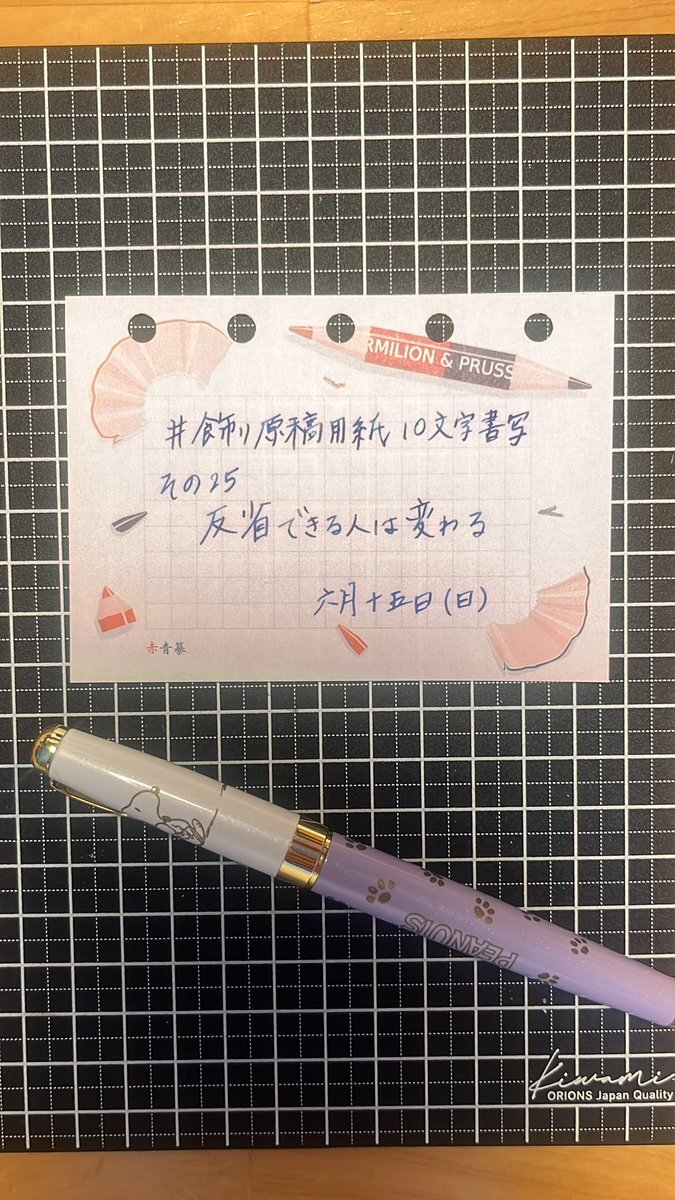 RMILION & PRUSS
#飾り原稿用紙10文字書写
その25
反省できる人は変わる
六月十五日(日)
赤青纂
PEANUTS
Kiwami
ORIONS Japan Quality